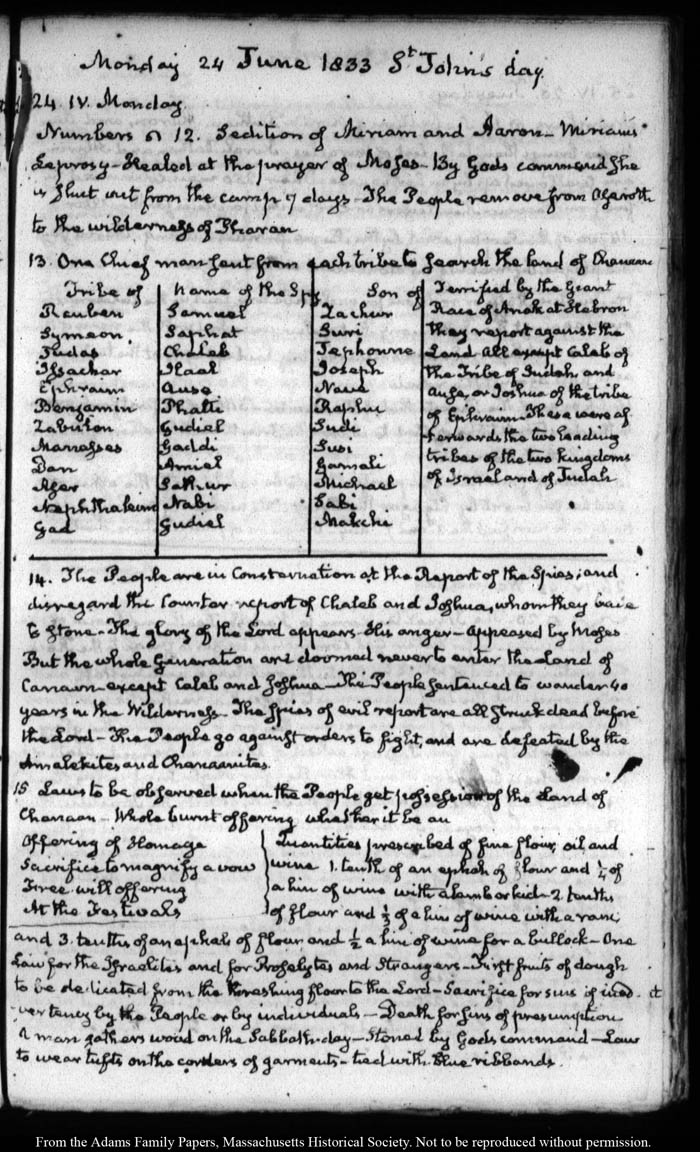 Monday 24 June 1833 St John's day.
24. IV. Monday.
Numbers 12. Sedition of Miriam and Aaron— Miriam's
Leprosy—Healed at the prayer of Moses—By Gods command she
is shut out from the camp 7 days—The People remove from Aseroth
to the wilderness of Pharan
13. One Chief man sent from each tribe to search the land of Chanaan
Tribe of Name of the Spy Son of
Reuben Samuel Zachur
Symeon Saphat Suri
Judas Chaleb Jephonne
Issachar Ilaal Joseph
Ephraim Ause Naue
Benjamin Phalti Raphu
Zabulon Gudiel Sudi
Manasses Gaddi Susi
Dan Amiel Gamali
Aser Sathur Michael
Nephthaleim Nabi Sabi
Gad Gudiel Makchi
Terrified by the Giant
Race of Anak at Hebron
they report against the
Land all except Caleb of
the Tribe of Judah and
Ause, or Joshua of the tribe
of Ephraim. These were af-
terwards the two leading
tribes of the two kingdoms
of Israel and of Judah
14. The People are in Consternation at the Report of the Spies; and
disregard the Counter report of Chaleb and Joshua, whom they
to stone—The glory of the Lord appears—His anger—appeased by Moses
But the whole Generation are doomed never to enter the Land of
Canaan except Caleb and Joshua—The People sentenced to wander 40
years in the Wilderness—The spies of evil report are all struck dead before
the Lord—The People go against orders to fight, and are defeated by the
Amalekites and Chanaanites.
15 Laws to be observed when the People get possession of the Land of
Chanaan—Whole burnt offering whether it be an
Offering of Homage
Sacrifice to magnify a vow
Free will offering
At the Festivals
Quantities prescribed of fine flour, oil and
wine 1. tenth of an ephah of flour and ¼ of
a hin of wine with a lamb or kid—2 tenths
of flour and ⅓ of a hin of wine with a ram;
and 3. tenths of an ephah of flour and ½ a hin of wine for a bullock—One
Law for the Israelites and for Proselytes and Strangers—First fruits of dough
to be dedicated from the threshing floor to the Lord—Sacrifice for sins of inad-
vertency by the People or by individuals—Death for sins of presumption
A man gathers wood on the Sabbath-day—Stoned by Gods command—Law
to wear tufts on the corners of garments—tied with blue ribbands.
From the Adams Family Papers, Massachusetts Historical Society. Not to be reproduced without permission.